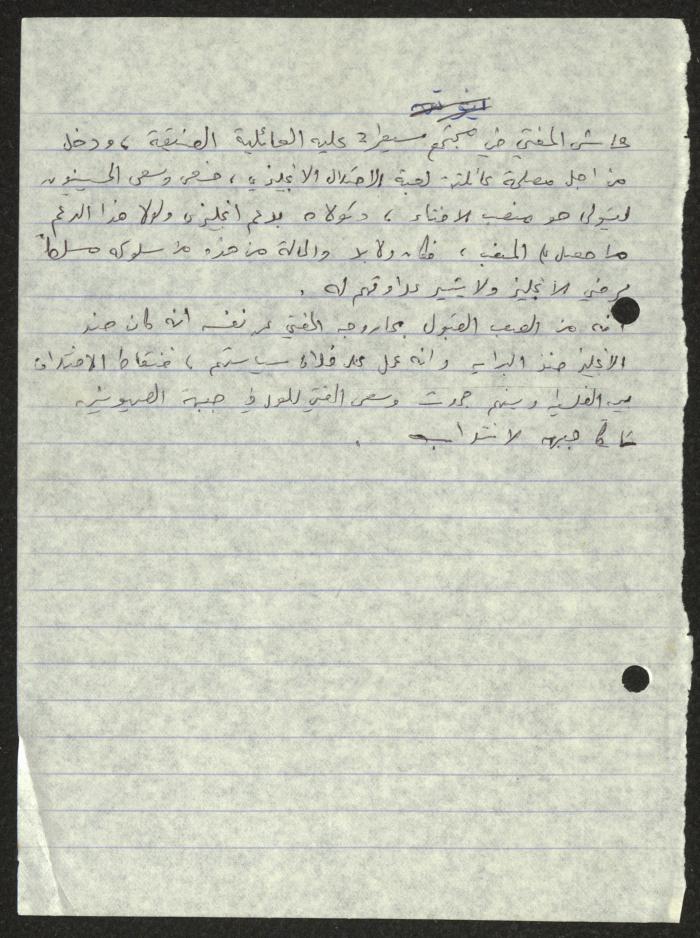 عاش المفتي في مجتمع سيطرة عليه العائلية الضيقة ، ودخل
من اجل مصلحة عائلته لعبة الاحتلال الانجليزي ، فسعى وسعى الحسينيون
ليتولى هو منصب الافتاء ، وتولاه بدعم انجليزي ولولا هذا الدعم
ما حصل المنصب ، فكان ولا بد والحالة من هذه من سلوكه مسلكا
يرضي الانجليز ولا يثير عداوتهم له .
انه من الصعب القبول بما روجه المفتي عن نفسه انه كان ضد
الانجليز منذ البداية وانه عمل على خلاف سياستهم ، فنقاط الافتراق
بين وبينهم حددت وسعى المفتي في جبهة الصهيونية
لا جبهة الانتداب .